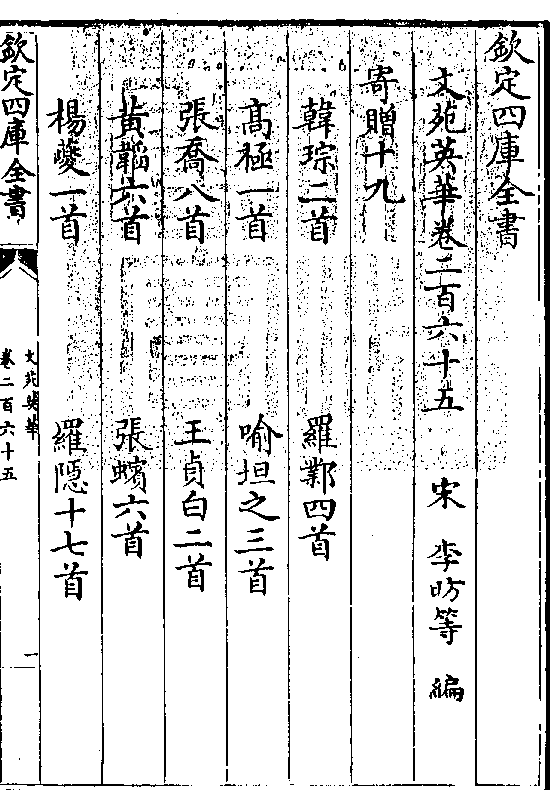 欽定四庫全書
文苑英華卷二百六十五　宋　李昉等　編
寄贈十九
韓琮二首　羅鄴四首
高極一首　喻坦之三首
張喬八首　王貞白二首
黃韜六首　張蠙六首
楊夔一首　羅隱十七首
欽定四庫全書
文苑英華
卷二百六十五
一